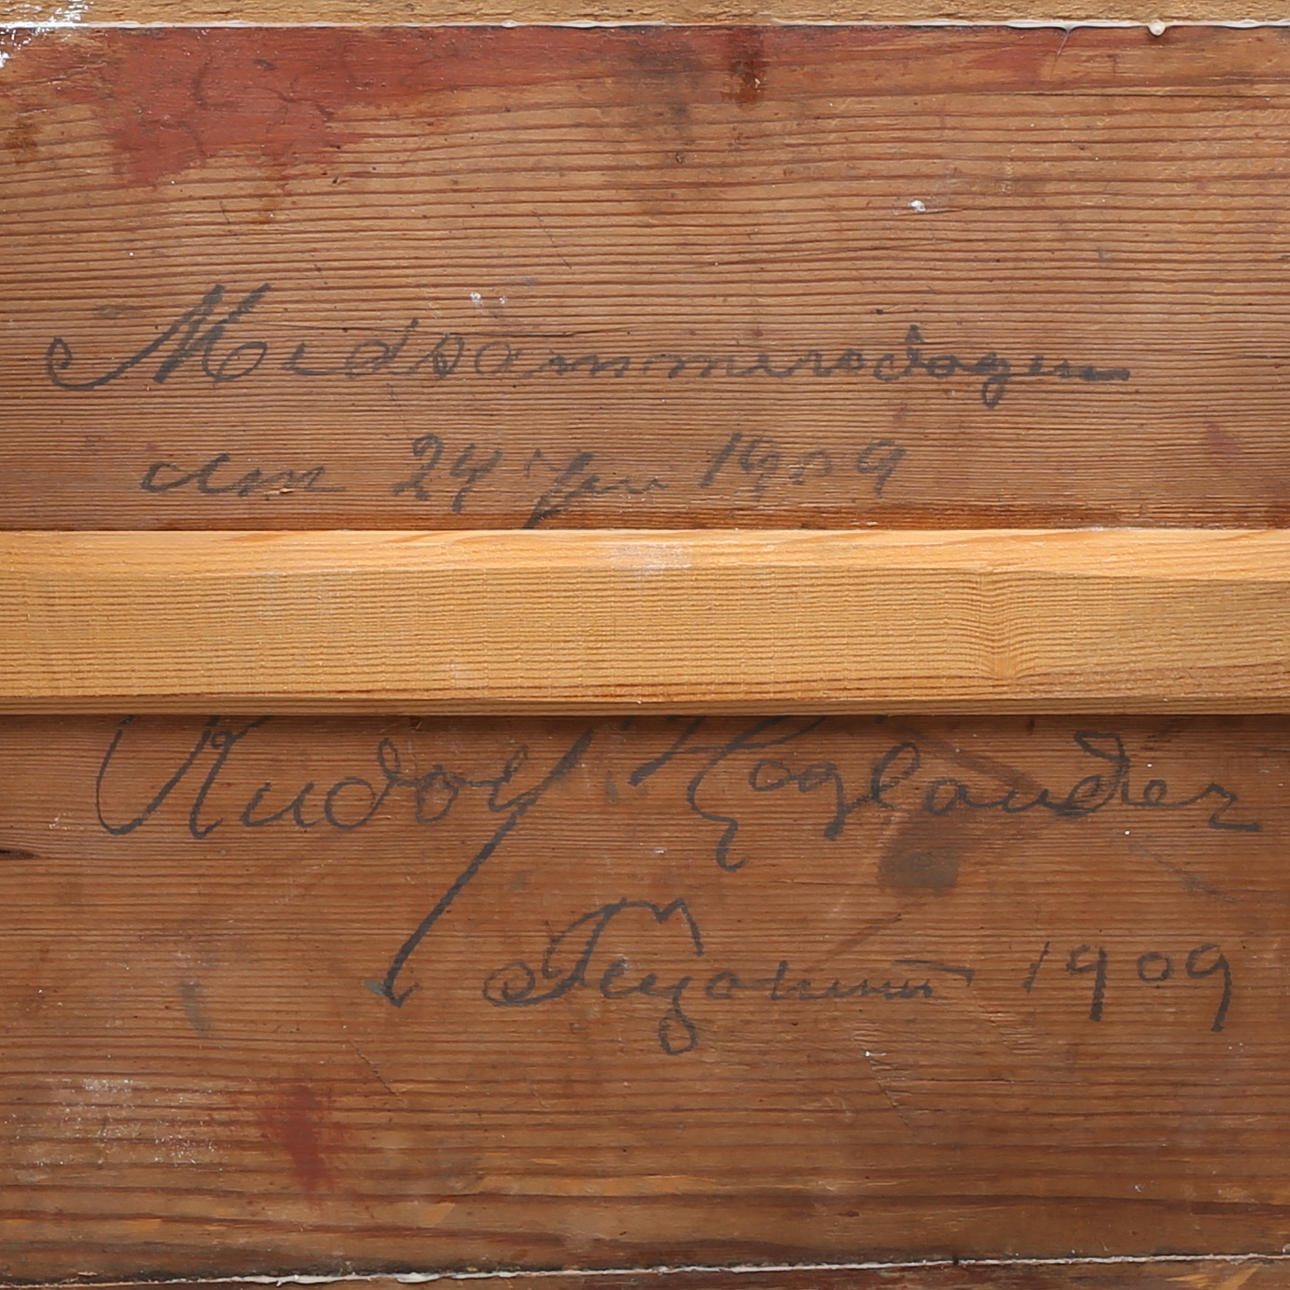 Midsommersdagen
den 24 Juni 1909
Rudolf Höglander
1909